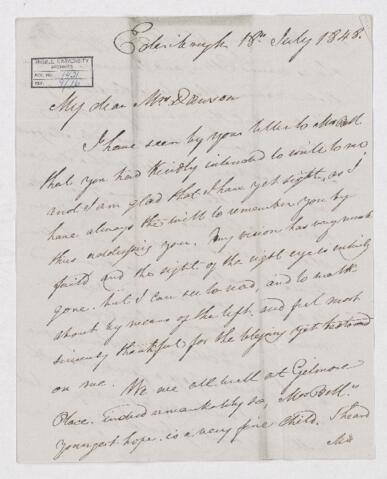 Edinburgh 18th July 1848.
McGILL UNIVERSITY
ARCHIVES
ACC. NO. 1431
REF. 9/16
My dear Mrs Dawson
I have seen by your letter to Mrs Bell
that you had kindly intended to write to me
and I am glad that I have yet sight, as I
have always the will to remember you by
thus addressing you. My vision has very much
faild and the sight of the right eye is entirely
gone. but I can see to read, and to walk
about by means of the left, and feel most
sincerely thankful for the blessing yet bestowed
on me. We are all well at Gilmore
Place. Indeed remarkably so, Mrs Bell's
youngest hope is a very fine Child. I heard